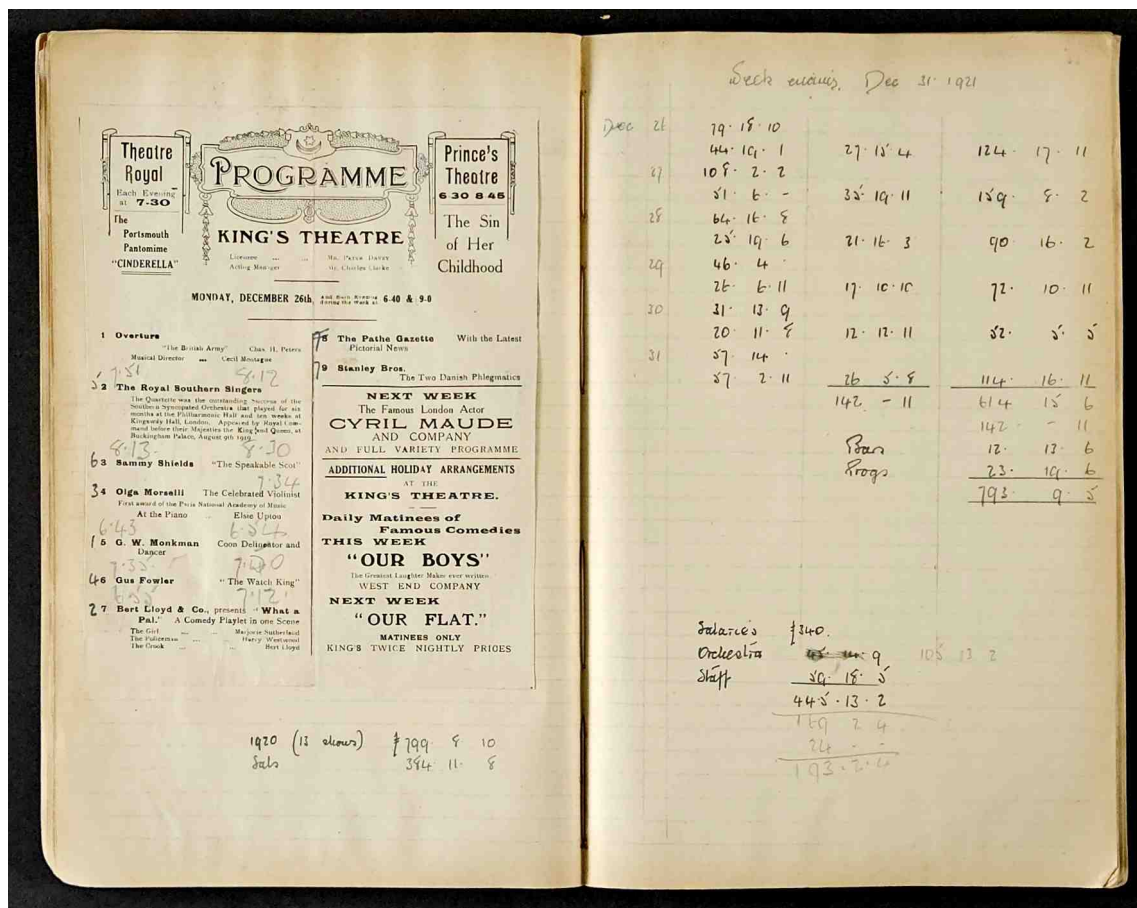 Theatre
Royal
Each Evening
at 7-30
The
Portsmouth
Pantomime
"CINDERELLA"
PROGRAMME
KING'S THEATRE
Licensee ... ... Mr. Peter Davey
Acting Manager Mr. Charles Clarke
Prince's
Theatre
6 30 8 45
The Sin
of Her
Childhood
MONDAY, DECEMBER 26th, and Each Evening during the Week at 6-40 & 9-0
1 Overture
"The British Army" Chas. H. Peters
Musical Director ... Cecil Montague
7.51 8.12
5 2 The Royal Southern Singers
The Quartette was the outstanding Success of the
Southern Syncopated Orchestra that played for six
months at the Philharmonic Hall and ten weeks at
Kingsway Hall, London. Appeared by Royal Com-
mand before their Majesties the King and Queen, at
Buckingham Palace, August 9th 1919.
8.13 8.30
6 3 Sammy Shields "The Speakable Scot"
7.34
3 4 Olga Morselli The Celebrated Violinist
First award of the Paris National Academy of Music
At the Piano ... Elsie Upton
6.43 6.54
1 5 G. W. Monkman Coon Delineator and
Dancer
7.35 7.50
4 6 Gus Fowler "The Watch King"
6.55 7.12
2 7 Bert Lloyd & Co., presents "What a
Pal." A Comedy Playlet in one Scene
The Girl ... ... Marjorie Sutherland
The Policeman ... ... Harry Westwood
The Crook ... ... Bert Lloyd
8 The Pathe Gazette With the Latest
Pictorial News
7 9 Stanley Bros.
The Two Danish Phlegmatics
NEXT WEEK
The Famous London Actor
CYRIL MAUDE
AND COMPANY
AND FULL VARIETY PROGRAMME
ADDITIONAL HOLIDAY ARRANGEMENTS
AT THE
KING'S THEATRE.
Daily Matinees of
Famous Comedies
THIS WEEK
"OUR BOYS"
The Greatest Laughter Maker ever written.
WEST END COMPANY
NEXT WEEK
"OUR FLAT."
MATINEES ONLY
KING'S TWICE NIGHTLY PRICES
1920 (13 shows) £799 8 10
Sals 384 11 8
Week ending, Dec 31. 1921
Dec 26 79. 18. 10
44. 19. 1 27. 15. 4 124. 17. 11
27 108. 2. 2
51. 6. - 35. 19. 11 159. 8. 2
28 64. 16. 8
25. 19. 6 21. 16. 3 90. 16. 2
29 46. 4.
26. 6. 11 17. 10. 10 72. 10. 11
30 31. 13. 9
20. 11. 8 12. 12. 11 52. 5. 5
31 57. 14.
57. 2. 11 26 5. 8 114. 16. 11
142. - 11 614 15 6
142 - 11
Bars 12. 13. 6
Progs 23. 19. 6
793. 9. 5
Salaries £340.
Orchestra 9 105 13 2
Staff 59. 18. 5
445. 13. 2
169 2 4
24 - -
193. 2. 4